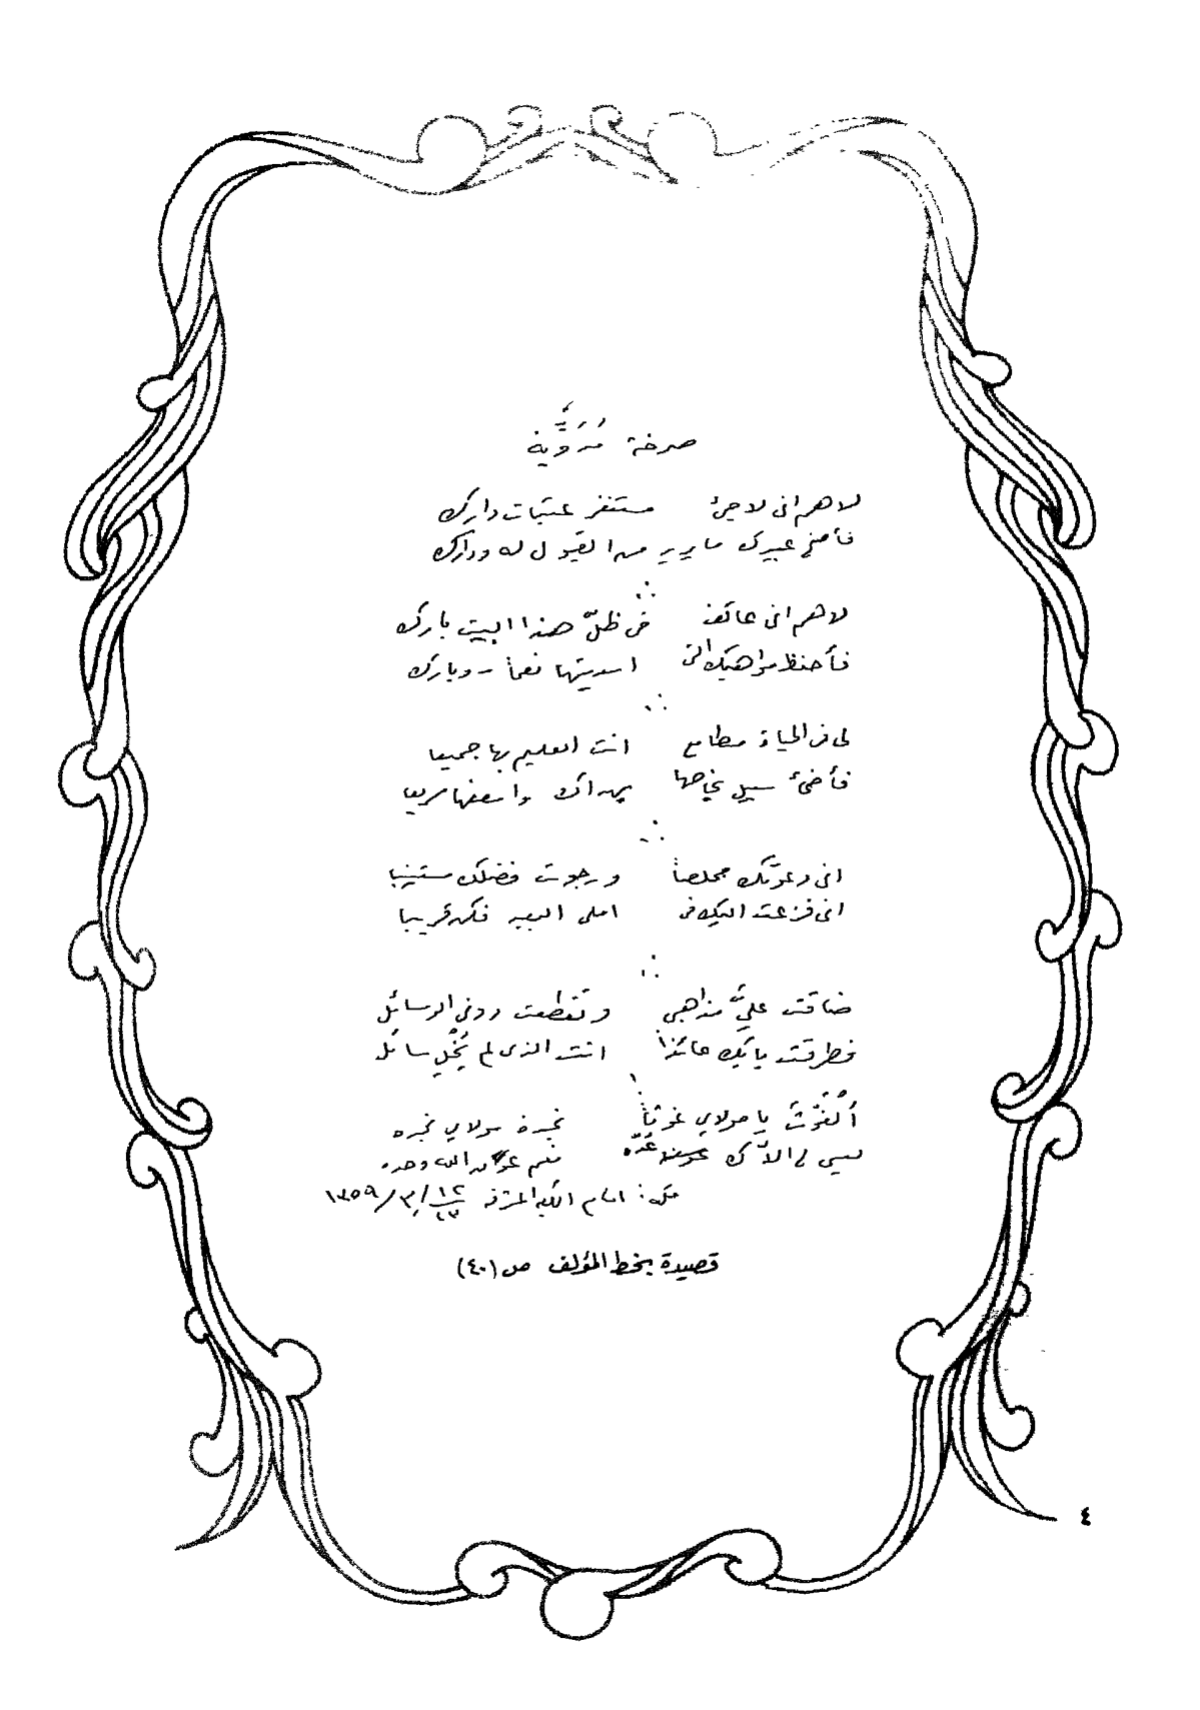 صرخة مُدَوِّيَة
لاهم انى لاجئ مستنفر عتبات دارك
فأمنح عبيدك ما يريد من القبول له ودارك
لاهم انى عاكف فى ظلّ هذا البيت بارك
فأحفظ مواهبك التى اسديتها نعماً وبارك
لى فى الحياة مطامع انت العليم بها جميعا
فأضئ سبيل نجاحها بهداك واسعفها سريعا
انى دعوتك مخلصاً ورجوت فضلك مستنيبا
انى فزعت اليك فى املى البعيد فكن قريبا
ضاقت عليَّ مذاهبي وتقطعت دونى الوسائل
فطرقت بابك عائذاً انت الذى لم يُخْلِ سائل
أَلْغَوْثَ يا مولاي غوثاً نجدة مولاي نجده
ليس لى الاّك عُدّه فنعم عون الله وحده
مكة: امام الكعبة المشرفة ١٢/٣/١٣٥٩
٢٣
قصيدة بخط المؤلف ص (٤٠)
٤